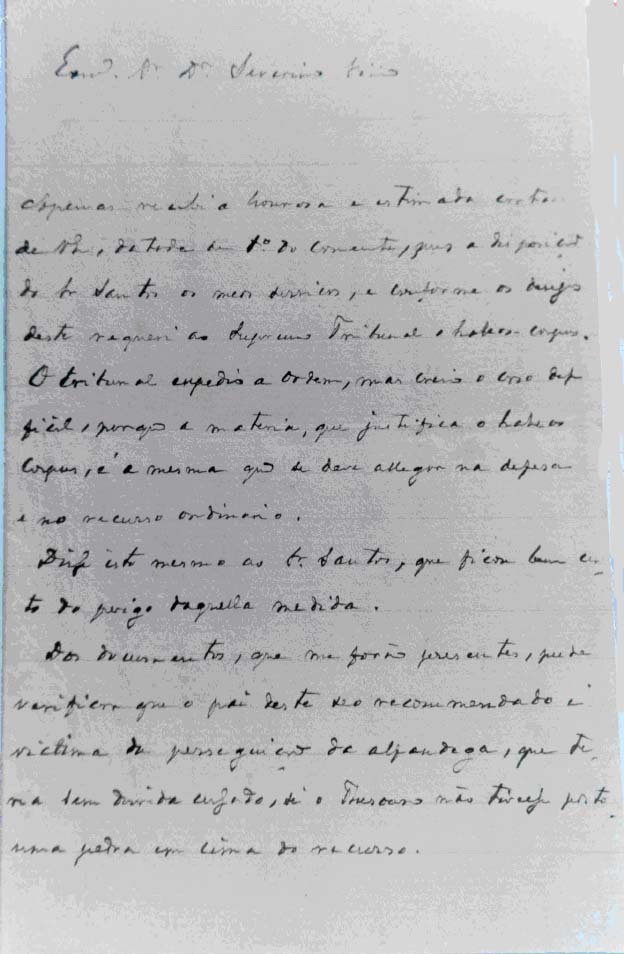 Exmo. Sr. Dr. Severino
Apenas recebi a honrosa e estimada carta
de VE, datada de 1º do corrente, pus a disposição
do Sr. Santos os meos serviços, e conforme os desejos
deste requeri ao Supremo Tribunal o habeas-corpus.
O tribunal expedio a ordem, mas creio o caso dif
ficil, porque a materia, que justifica o habeas
Corpus, é a mesma que se deve allegar na defesa
e no recurso ordinario.
Disse isto mesmo ao Sr. Santos, que ficou bem cer-
to do perigo daquella medida.
Dos documentos, que me forão presentes, pude
verificar que o pai deste seo recommendado é
victima da perseguição da alfandega, que te-
ria sem duvida cessado, si o Thesouro não tivesse posto
uma pedra em cima do recurso.